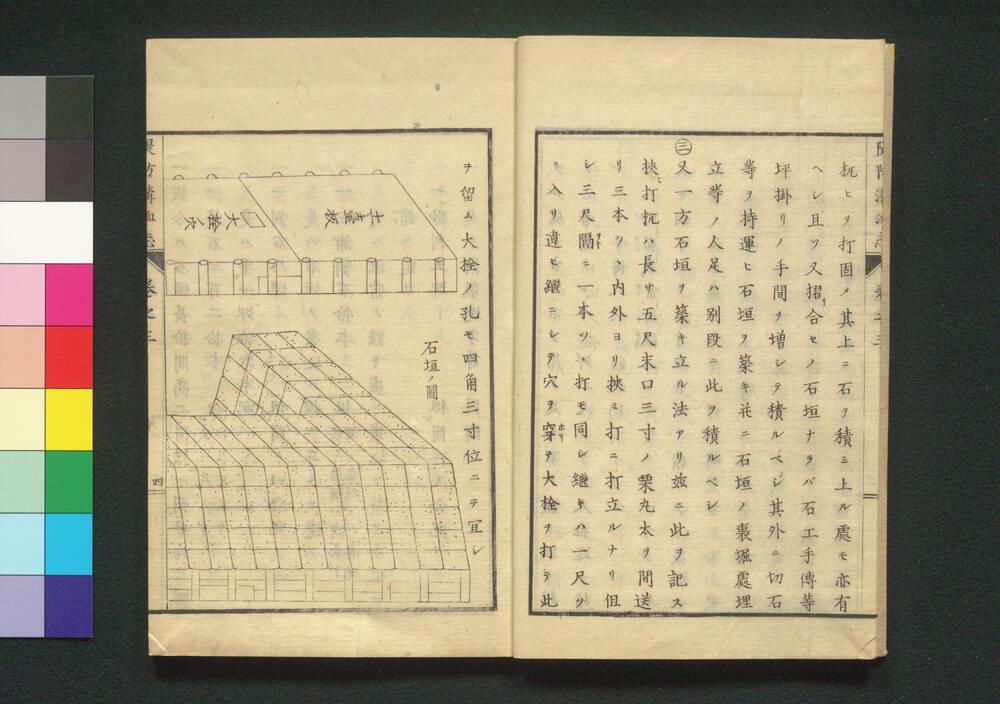 杭ヒヲ打固メ其上ニ石ヲ積ミ上ル處モ亦有
ヘシ且ツ又摺リ合セノ石垣ナラバ石工手傳等
坪掛リノ手間ヲ増シテ積ルベシ其外ニ切石
等ヲ持運ヒ石垣ヲ築キ并ニ石垣ノ裏堀處埋
立等ノ人足ハ別段ニ此ヲ積ルベシ
㊂又一方石垣ヲ築キ立ル法アリ玆ニ此ヲ記ス
挾ミ打杭ハ長サ五尺末口三寸ノ栗丸太ヲ間送
リ三本ツヽ內外ヨリ挾ミ打ニ打立ルナリ但
シ三尺隔テニ一本ツヽ打モ同シ継キハ一尺ツ
ヽ入リ違ヒ継ニシテ穴ヲ穿ホリテ大栓ヲ打テ此
ヲ留ム大栓ノ孔モ四角三寸位ニテ宜シ
石垣ノ圖
大栓穴
卷之三
四